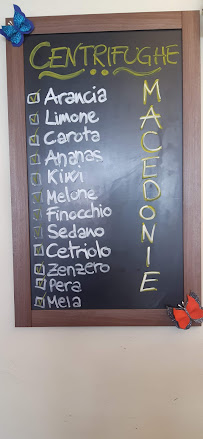 CENTRIFUGHE
Arancia
Limone
Carota
Ananas
Kiwi
Melone
Finocchio
Sedano
Cetriolo
Zenzero
Pera
Mela
MACEDONIE